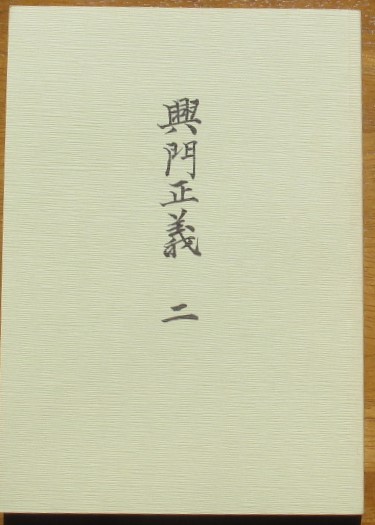 興門正義 二